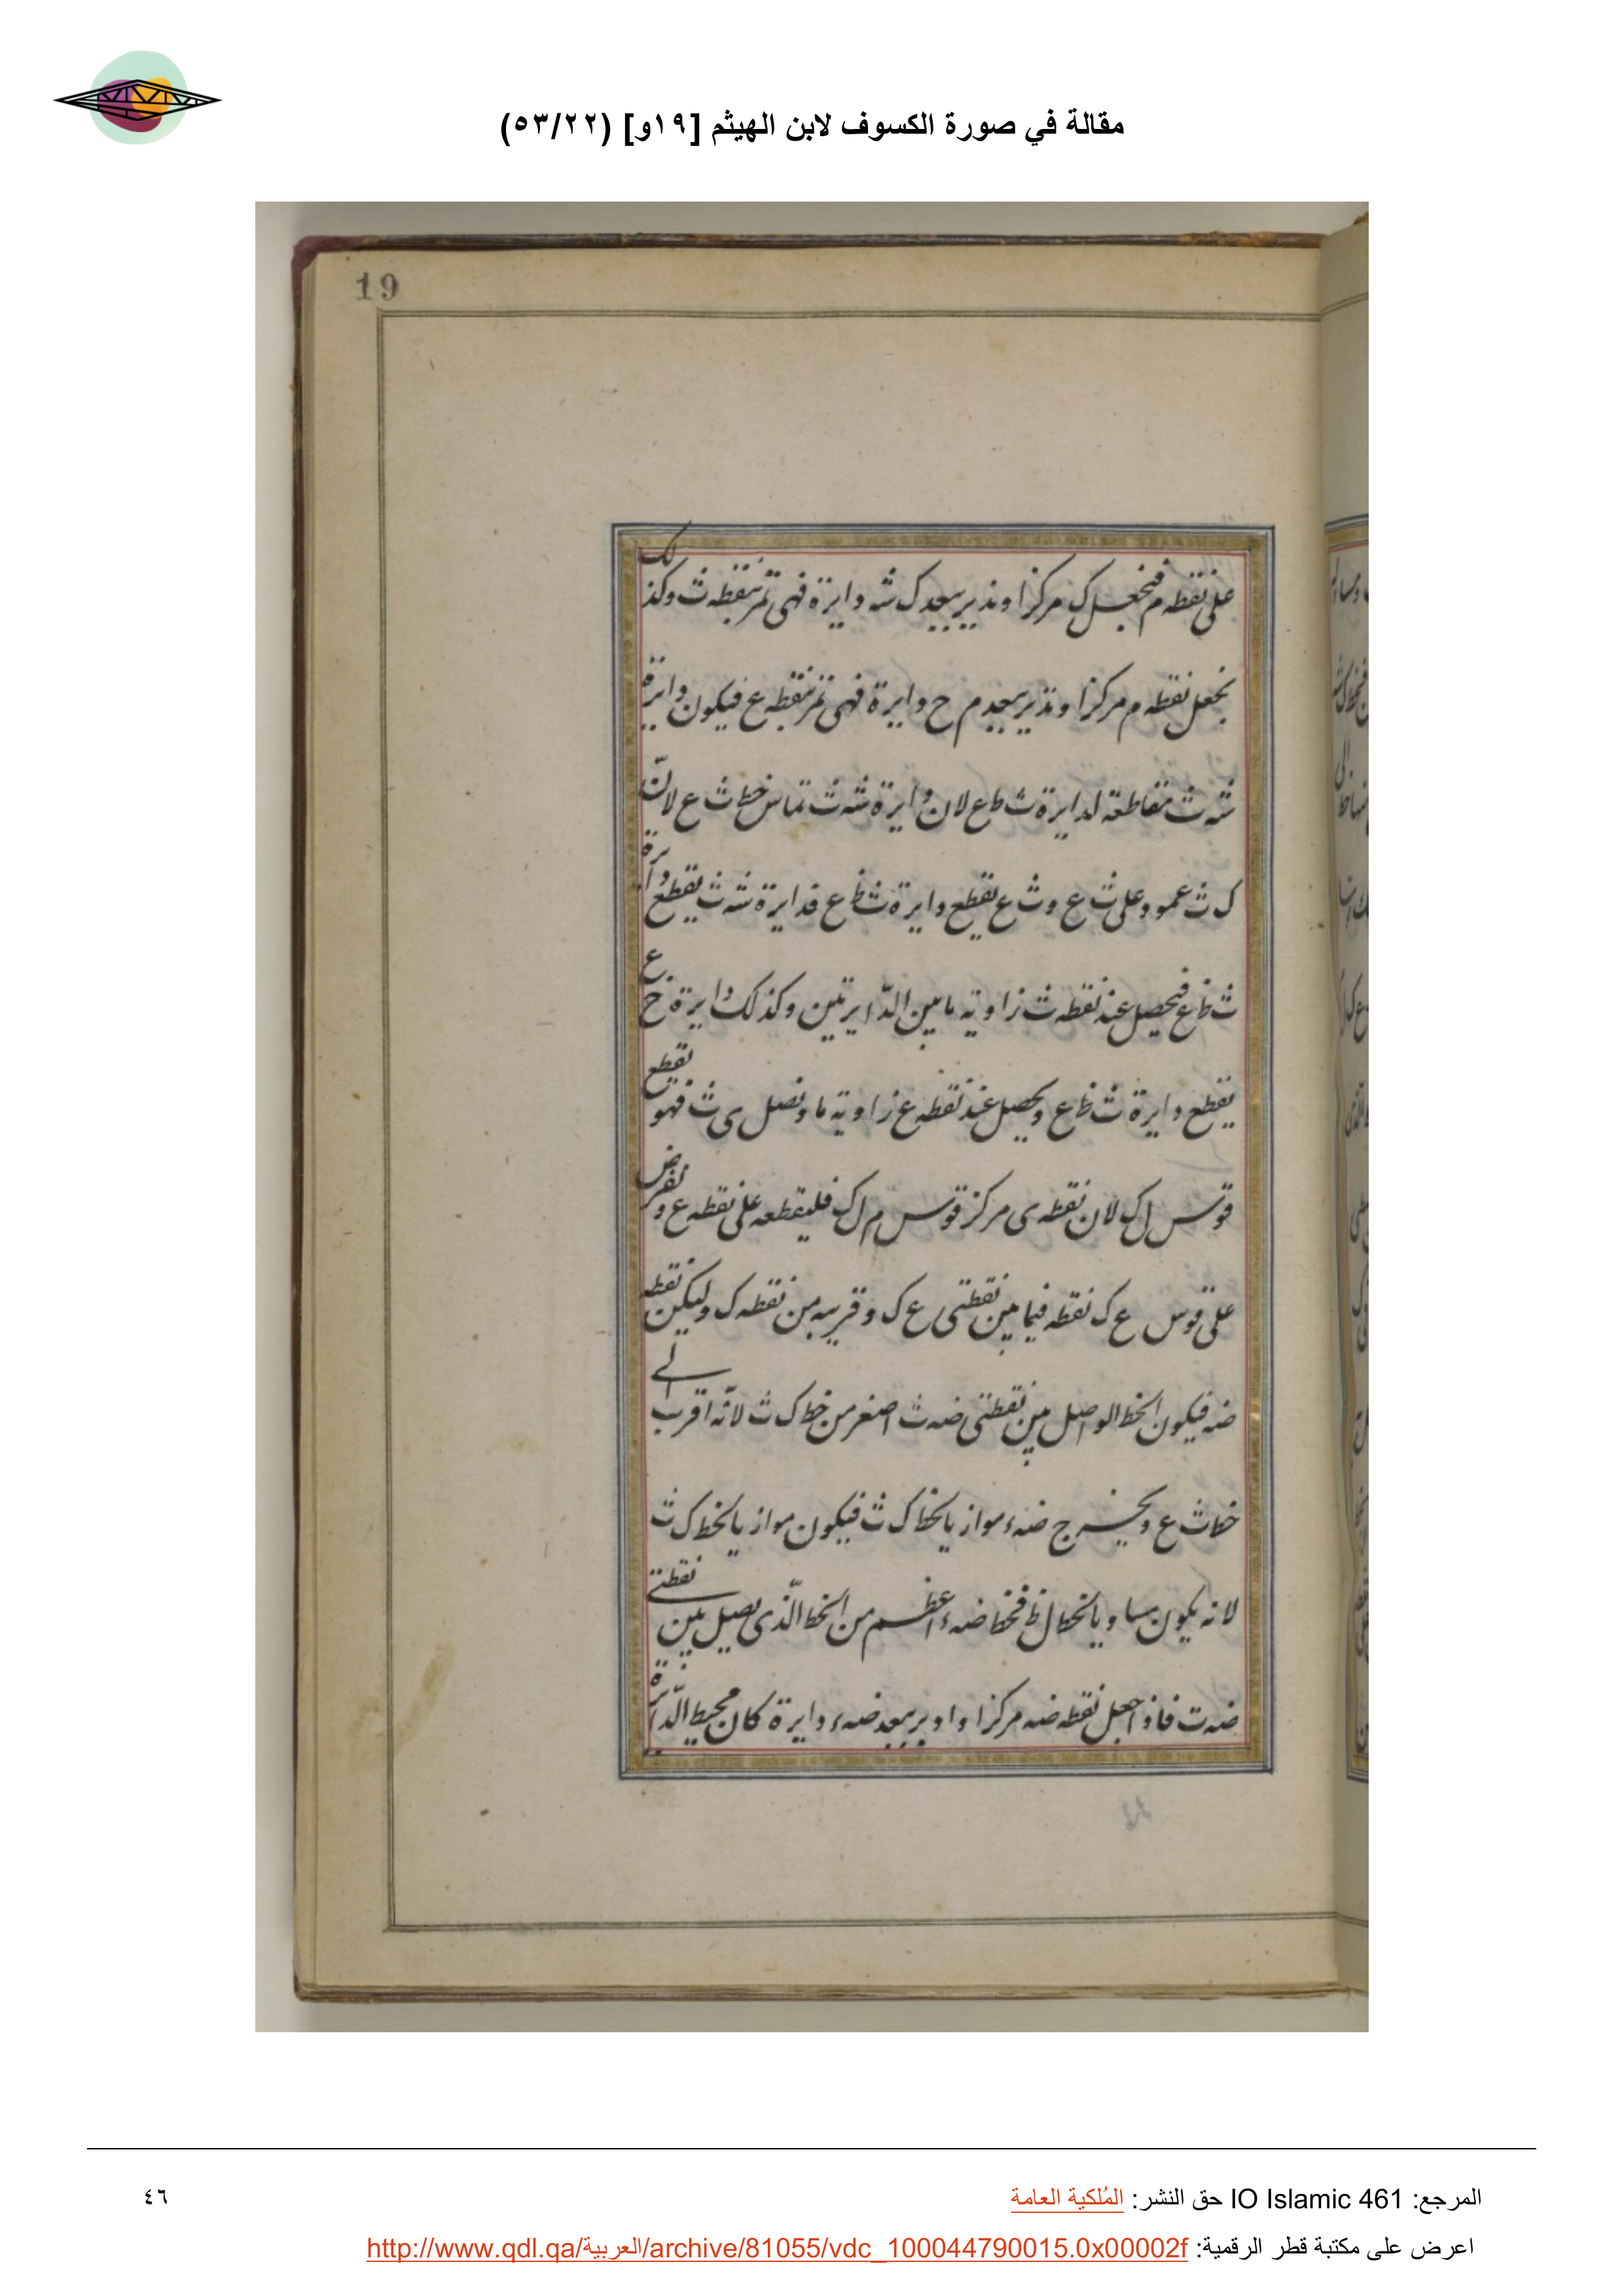 مقالة في صورة الكسوف لابن الهيثم [١٩و] (٥٣/٢٢)
19
على نقطه م فنجعل ك مركزا وندير ببعد ك شه دايرة فهى تمر بنقطه ث وكذلك
نجعل نقطه م مركزا وندير ببعد م خ دايرة فهى تمر بنقطه ع فيكون دايرة
شه ث مقاطعة لدايرة ث ظ ع لان دايرة شه ث تماس خط ث ع لانّ
ك ث عمود على ث ع و ث ع يقطع دايرة ث ظ ع فدايرة شه ث يقطع دايرة
ث ظ ع فيحصل عند نقطه ث زاويه ما بين الدّايرتين وكذلك دايرة خ ع
يقطع دايرة ث ظ ع ويحصل عند نقطه ع زاويه ما ونصل ى ث فهو يقطع
قوس ل ك لان نقطه ى مركز قوس م ل ك فليقطعه على نقطه ع ونفرض
على قوس ع ك نقطه فيما بين نقطتى ع ك وقريبه من نقطه ك وليكن نقطه
ضه فيكون الخط الواصل بين نقطتى ضه ث اصغر من خط ك ث لانّه اقرب الى
خط ث ع ويخرج ضه ء موازيا لخط ك ث فيكون موازيا لخط ك ث
لانه يكون مساويا لخط ل ظ فخط ضه ء اعظم من الخط الّذى يصل بين نقطتى
ضه ث فاذا جعل نقطه ضه مركزا وادير ببعد ضه ء دايرة كان محيط الدّايرة
المرجع: IO Islamic 461 حق النشر: المُلكية العامة
٤٦
اعرض على مكتبة قطر الرقمية: http://www.qdl.qa/العربية/archive/81055/vdc_100044790015.0x00002f